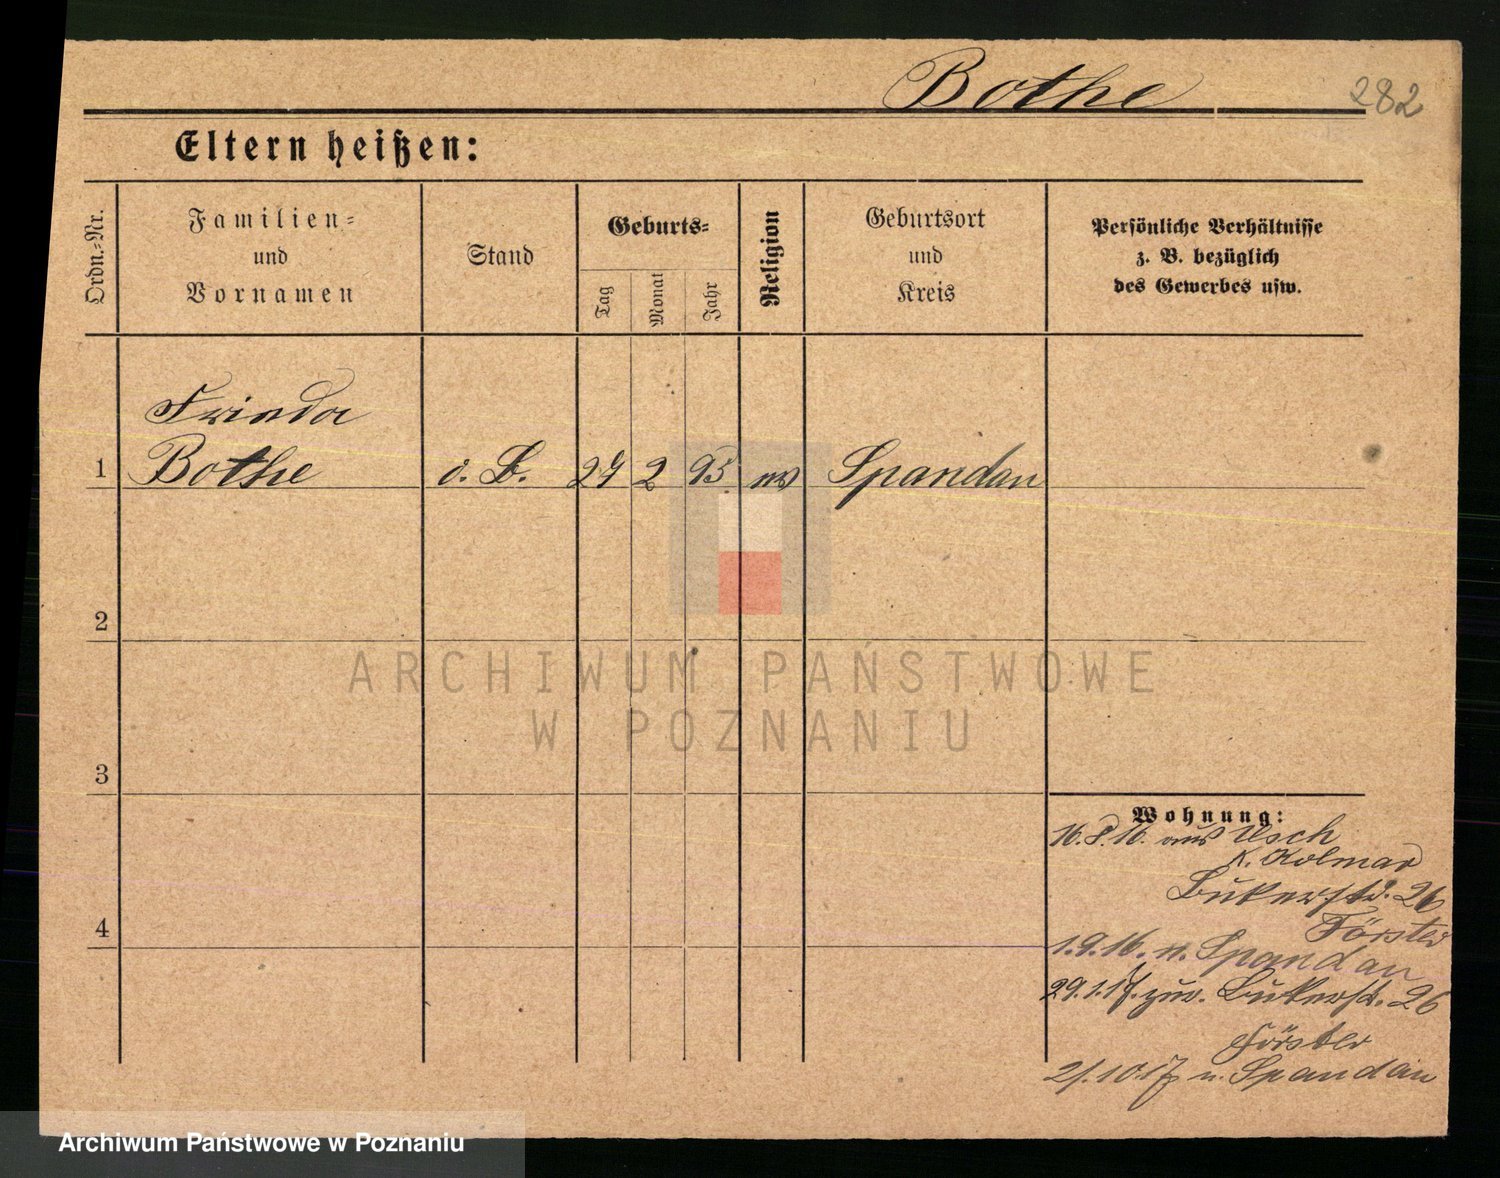 Bothe
282
Eltern heißen:
Ordn.-Nr.
Familien-
und
Vornamen
Stand
Geburts-
Tag
Monat
Jahr
Religion
Geburtsort
und
Kreis
Persönliche Verhältnisse
z. B. bezüglich
des Gewerbes usw.
Frieda
1 Bothe o. B. 27 2 95 ev Spandau
2
3
4
Wohnung:
16.8.16. aus Usch
K. Kolmar
Bukerstr. 26
Förster
1.9.16. n. Spandau
29.1.17. zur. Bukerst. 26
Förster
21.10.17 n. Spandau
ARCHIWUM PAŃSTWOWE
W POZNANIU
Archiwum Państwowe w Poznaniu